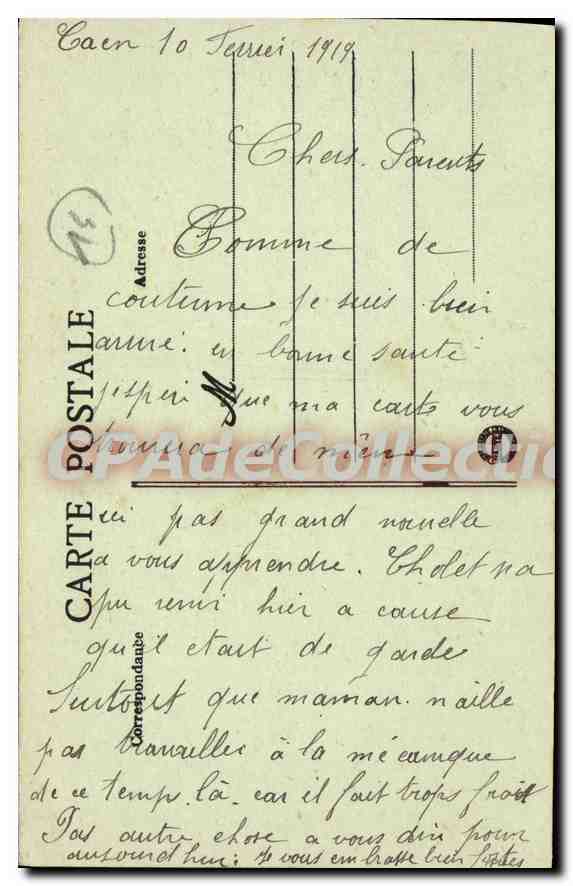 Caen 10 Fevrier 1919
14
Chers Parents
Comme de
coutume je suis bien
arrivé. en bonne santé
j'espere que ma carte vous
trouvera de même
ici pas grand nouvelle
a vous apprendre. Cholet na
pu venir hier a cause
qu'il etait de garde
Surtout que maman n'aille
pas travailler à la mécanique
de ce temps là. car il fait trops froit
Pas autre chose a vous dire pour
aujourd'hui. Je vous embrasse bien fortes
CARTE POSTALE
Correspondance
Adresse
M
CPAdeCollection